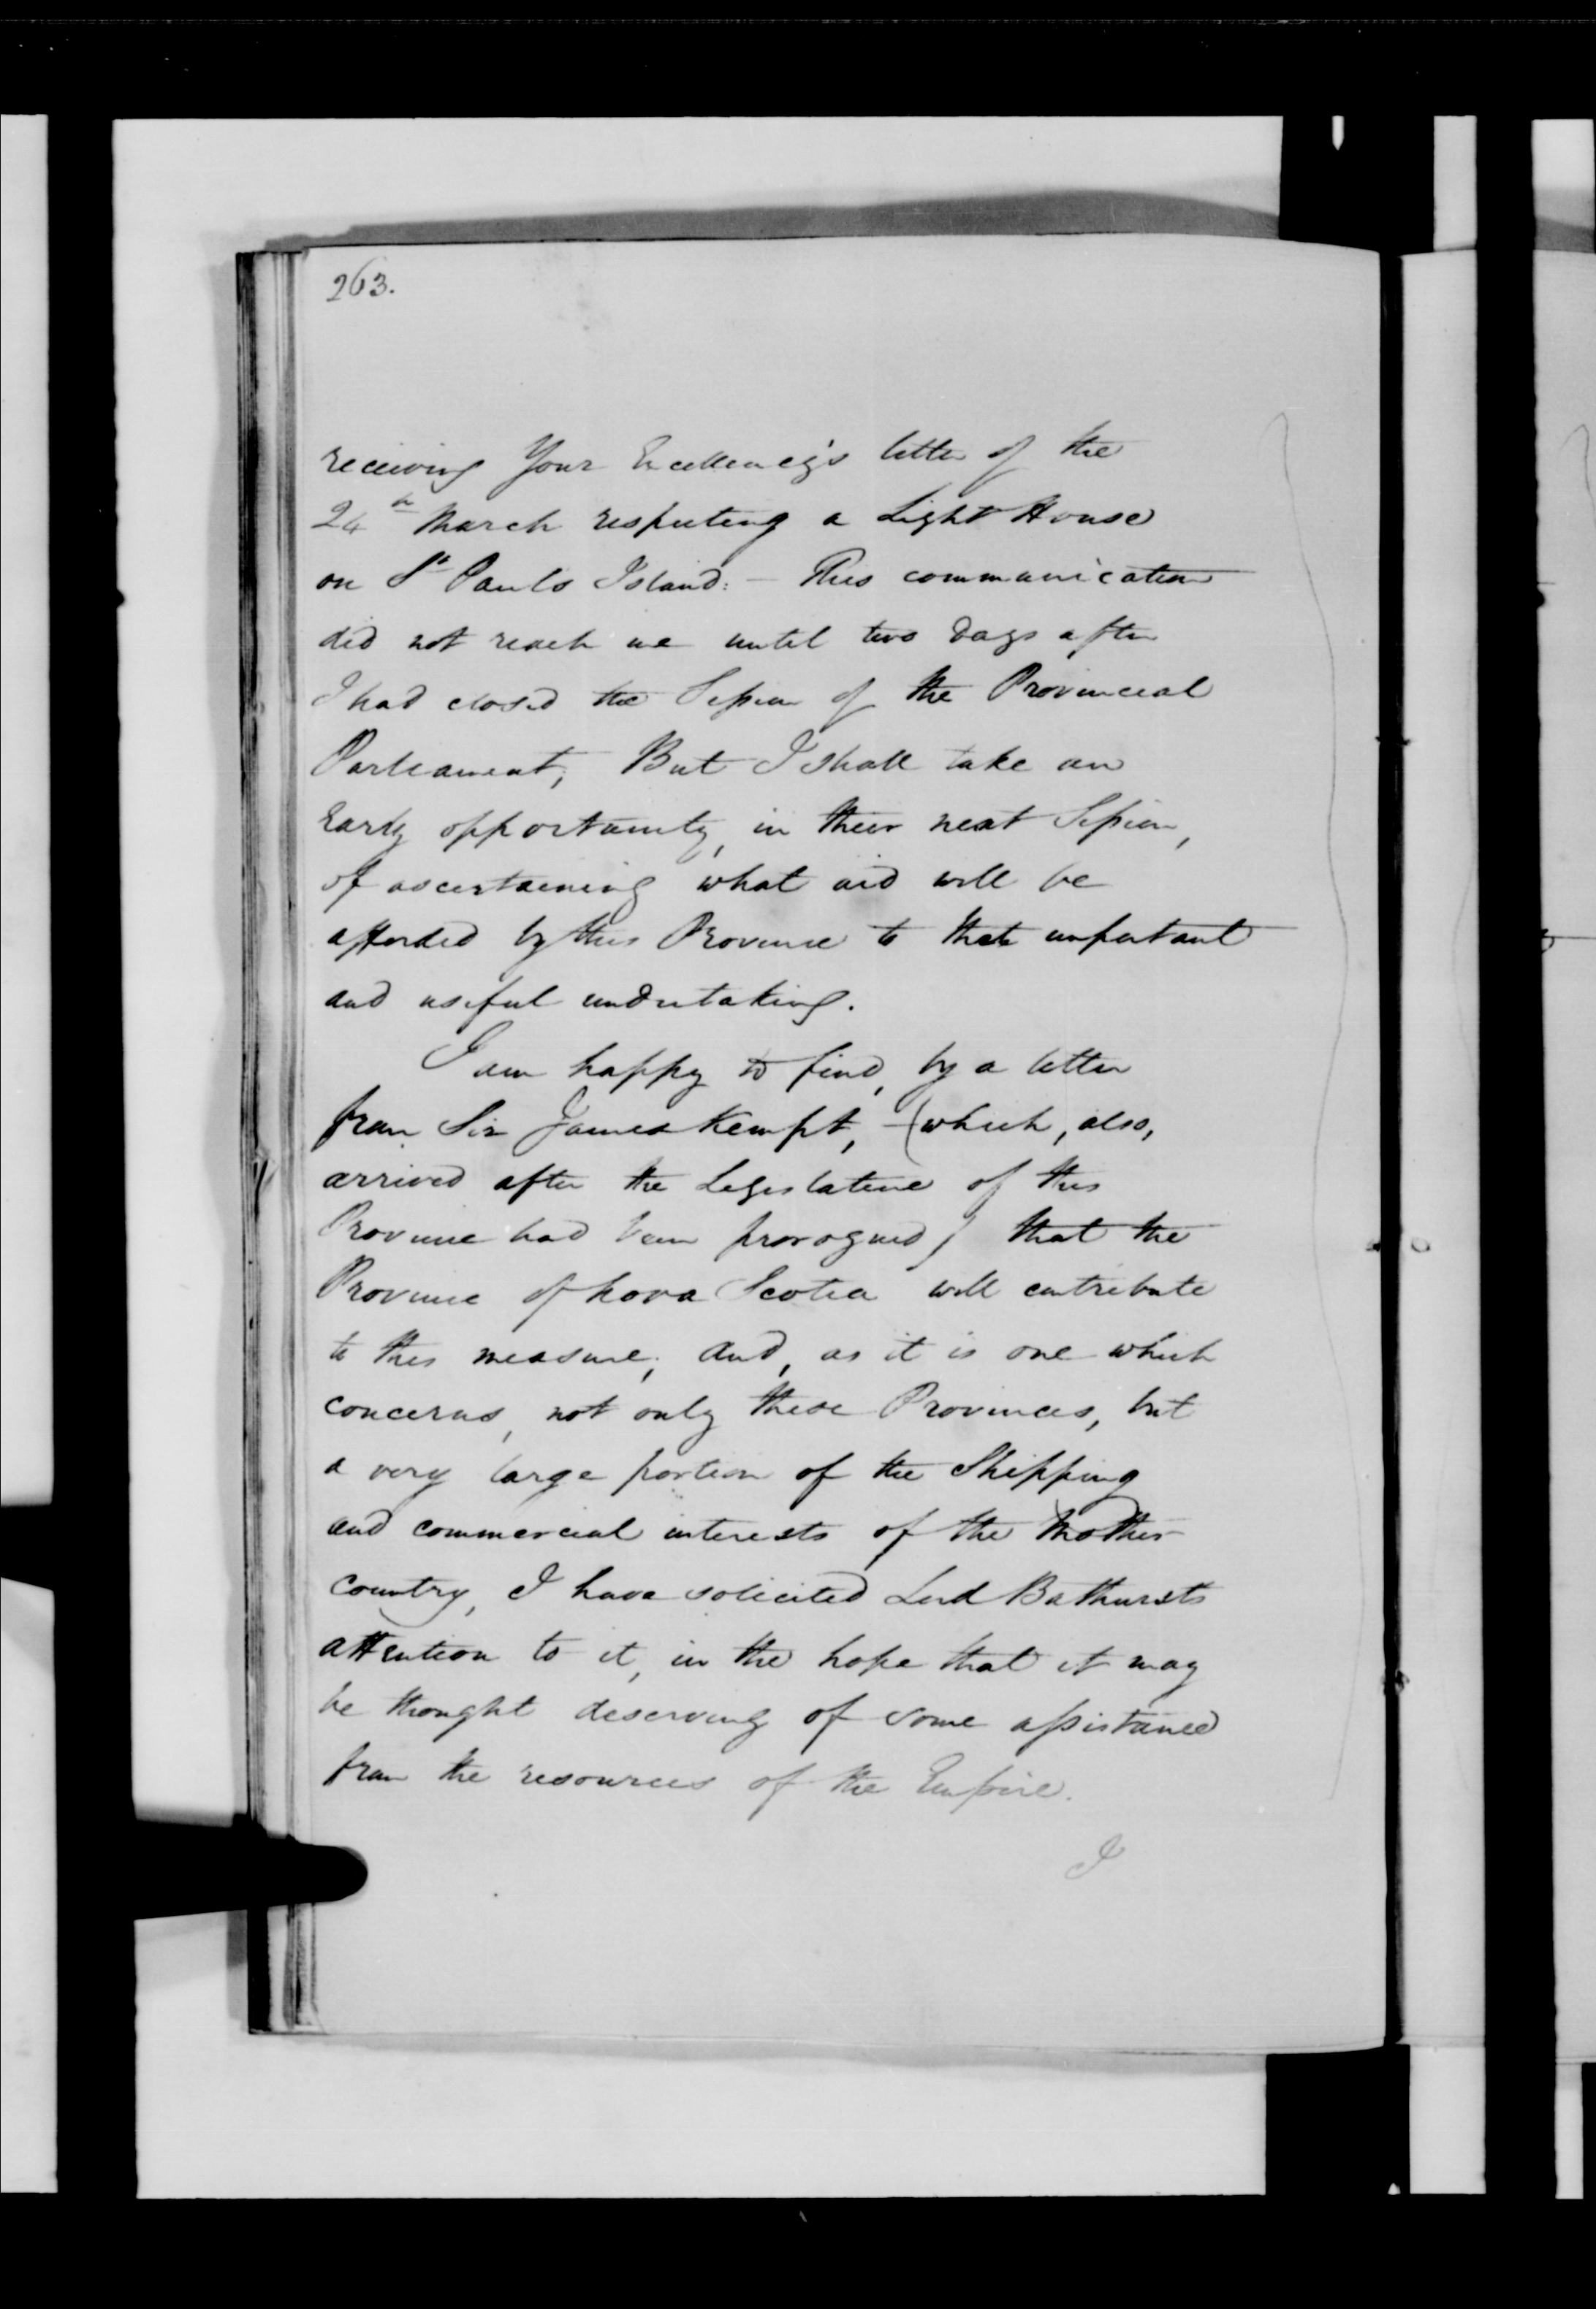 263.
receiving Your Excellency's letter of the
24th March respecting a Light House
on St Pauls Island: — This communication
did not reach me until two days after
I had closed the Session of the Provincial
Parliament; But I shall take an
Early opportunity, in their next Session,
of ascertaining what aid will be
afforded by this Province to that important
and useful undertaking.
I am happy to find, by a letter
from Sir James Kempt, — (which, also,
arrived after the Legislature of this
Province had been prorogued) that the
Province of Nova Scotia will contribute
to this measure; and, as it is one which
concerns, not only these Provinces, but
a very large portion of the Shipping
and commercial interests of the Mother
Country, I have solicited Lord Bathursts
attention to it, in the hope that it may
be thought deserving of some assistance
from the resources of the Empire.
I